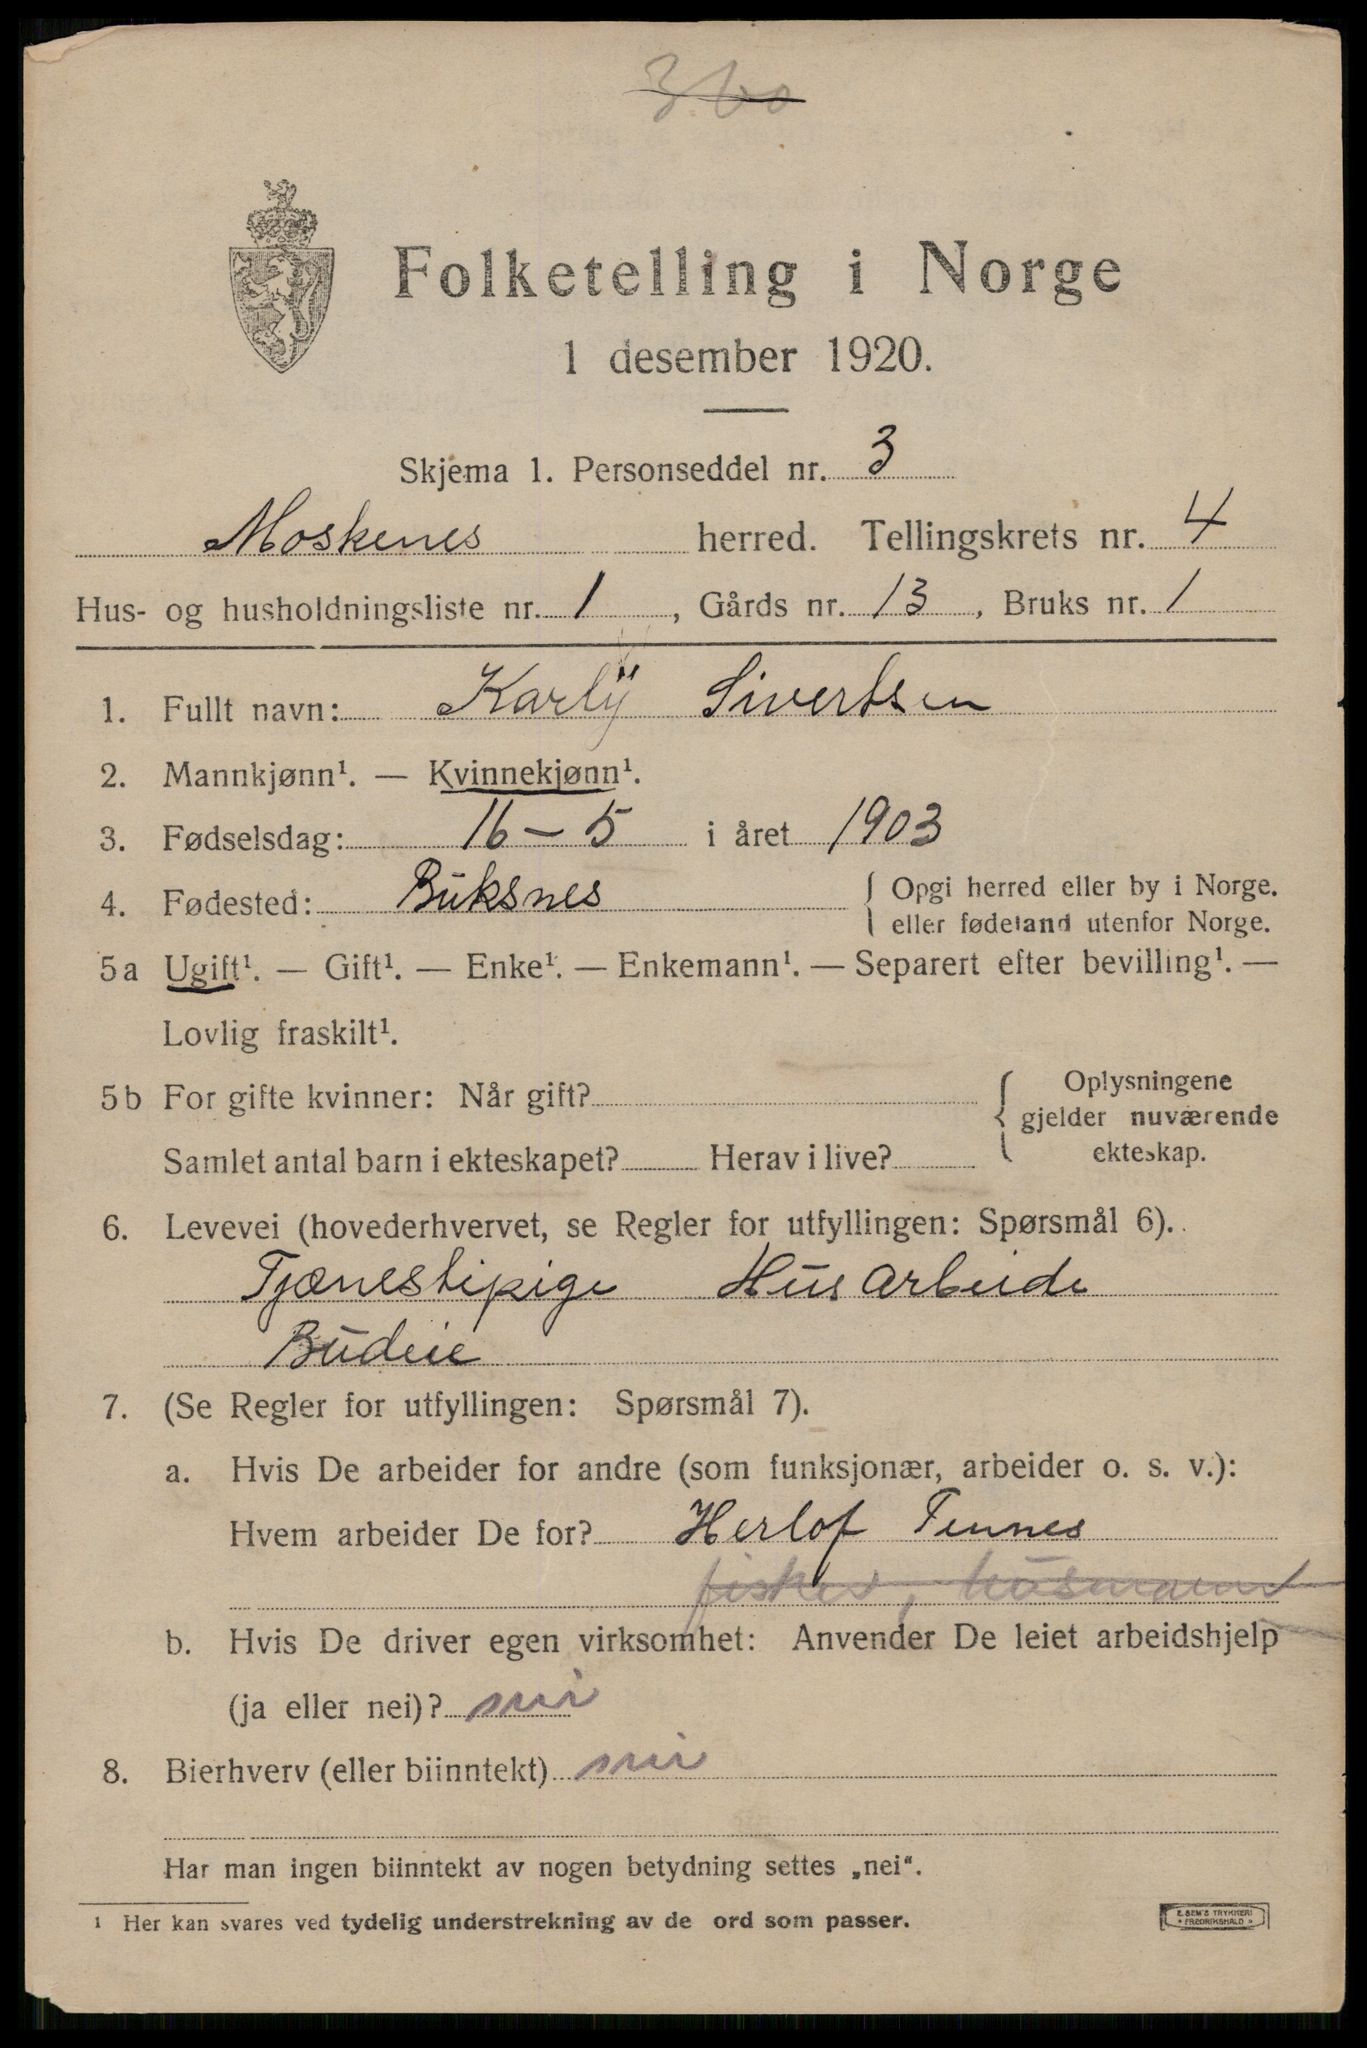 360
Folketelling i Norge
1 desember 1920.
Skjema 1. Personseddel nr. 3
Moskenes herred. Tellingskrets nr. 4
Hus- og husholdningsliste nr. 1, Gårds nr. 13, Bruks nr. 1
1. Fullt navn: Karly Sivertsen
2. Mannkjønn¹. — Kvinnekjønn¹.
3. Fødselsdag: 16 – 5 i året 1903
4. Fødested: Buksnes { Opgi herred eller by i Norge.
eller fødeland utenfor Norge.
5a Ugift¹. — Gift¹. — Enke¹. — Enkemann¹. — Separert efter bevilling¹. —
Lovlig fraskilt¹.
5b For gifte kvinner: Når gift?
Samlet antal barn i ekteskapet? Herav i live?
Oplysningene
gjelder nuværende
ekteskap.
6. Levevei (hovederhvervet, se Regler for utfyllingen: Spørsmål 6).
Tjænestepige Husarbeide
Budeie
7. (Se Regler for utfyllingen: Spørsmål 7).
a. Hvis De arbeider for andre (som funksjonær, arbeider o. s. v.):
Hvem arbeider De for? Herlof Tennes
fisker, husmann
b. Hvis De driver egen virksomhet: Anvender De leiet arbeidshjelp
(ja eller nei)? nei
8. Bierhverv (eller biinntekt) nei
Har man ingen biinntekt av nogen betydning settes „nei“.
¹ Her kan svares ved tydelig understrekning av de ord som passer.
E. SEM'S TRYKKERI
FREDRIKSHALD